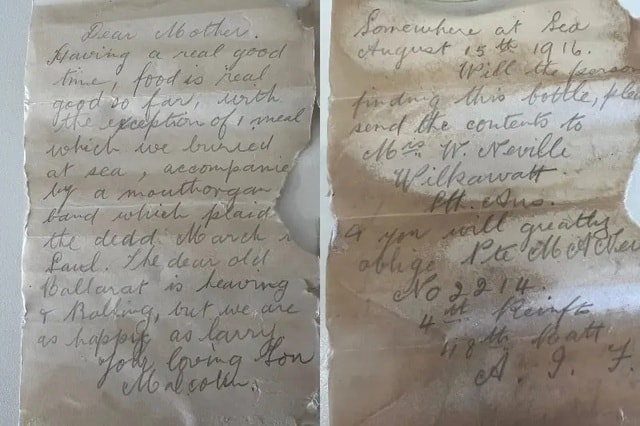 Dear Mother.
Having a real good
time, food is real
good so far, with
the exception of 1 meal
which we buried
at sea, accompanie
by a mouthorgan
band which plaid
the dedd. March
Saul. The dear old
Ballarat is heaving
& Rolling, but we are
as happy as larry.
your loving Son
Malcolm.
Somewhere at Sea
August 15th 1916.
Will the person
finding this bottle, plea
send the contents to
Mrs W. Neville
Wilkawatt.
Sth. Aus.
& you will greatly
oblige Pte M A Nev
No 2214.
4th Reinft
48th Batt
A. I. F.